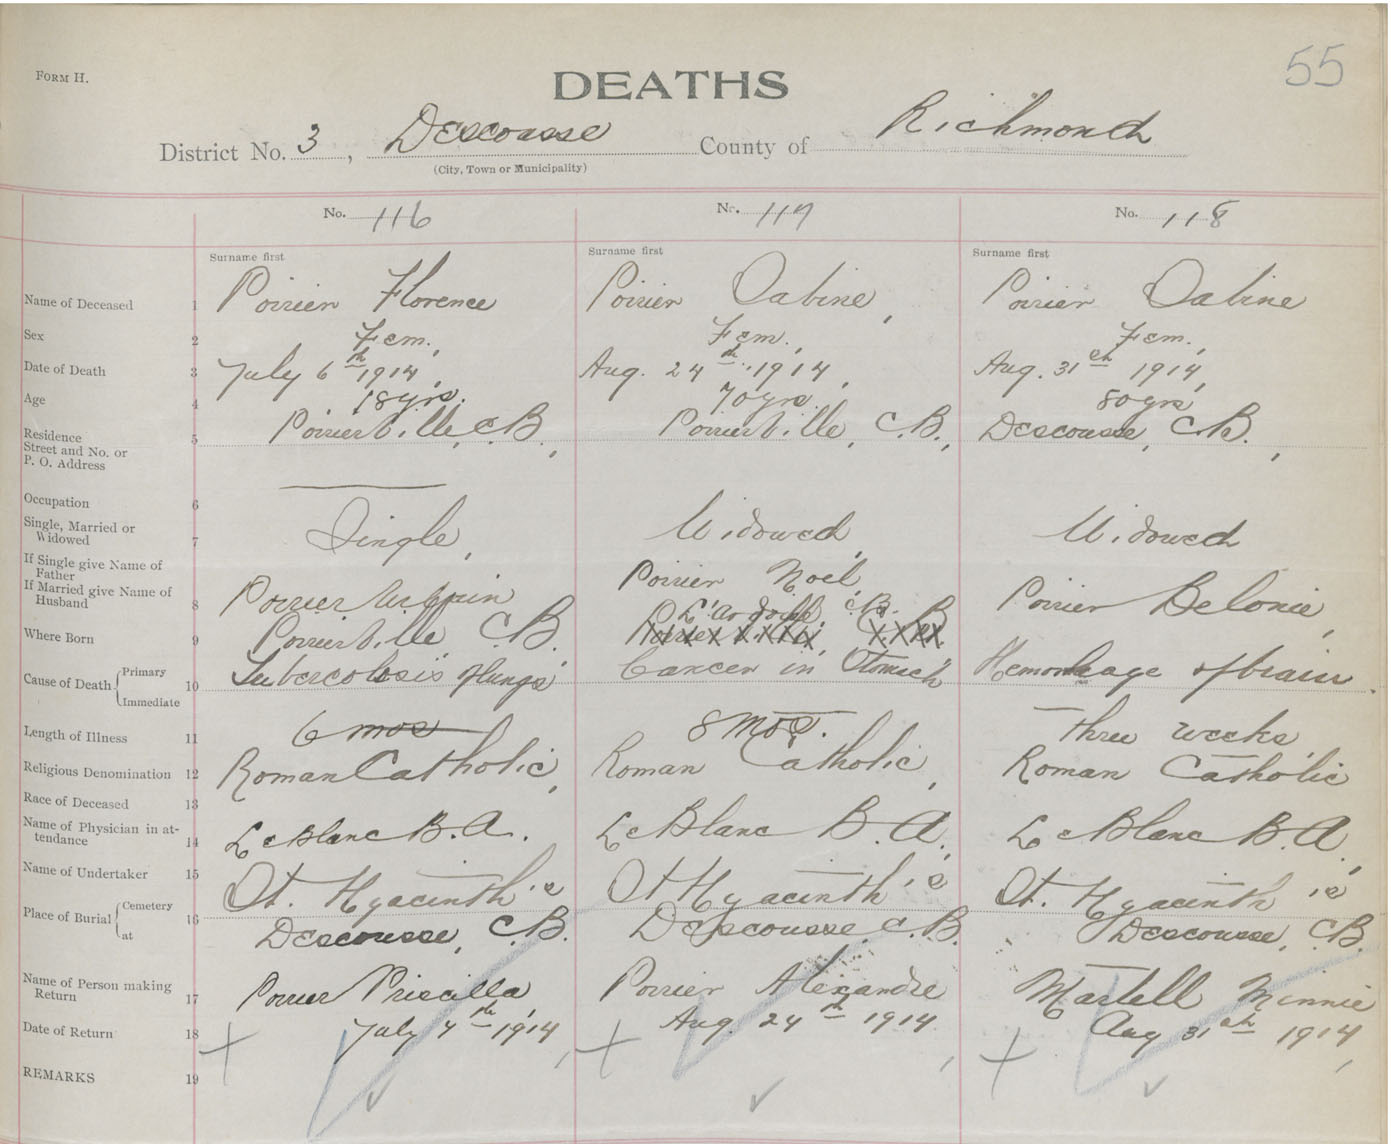 55
FORM H.
DEATHS
District No. 3, Descousse County of Richmond
(City, Town or Municipality)
No. 116 No. 117 No. 118
Surname first Surname first Surname first
Name of Deceased 1 Poirier Florence Poirier Sabine, Poirier Sabine
Sex 2 Fem., Fem., Fem.,
Date of Death 3 July 6th 1914, Aug. 24th 1914, Aug. 31th 1914,
Age 4 18 yrs. 70 yrs. 80 yrs
Residence
Street and No. or
P. O. Address 5 Poirierville, C.B., Poirierville, C.B., Descousse, C.B.,
Occupation 6
Single, Married or
Widowed 7 Single, Widowed, Widowed
If Single give Name of
Father
If Married give Name of
Husband 8 Poirier Poirier Noel, Poirier Belonie,
Where Born 9 Poirierville, C.B. L'ardoise, C.B.
Cause of Death Primary
Immediate 10 Tubercolosis of lungs Cancer in Stomach Hemorrhage of brain.
Length of Illness 11 6 mos 8 mos. Three weeks
Religious Denomination 12 Roman Catholic, Roman Catholic, Roman Catholic
Race of Deceased 13
Name of Physician in at-
tendance 14 LeBlanc B.A. LeBlanc B.A., LeBlanc B.A,
Name of Undertaker 15
Place of Burial Cemetery
at 16 St. Hyacinthie St Hyacinthie St. Hyacinthie
Descousse, C.B. Descousse C.B. Descousse, C.B.
Name of Person making
Return 17 Poirier Priscilla, Poirier Alexandre Martell Minnie
Date of Return 18 July 7th 1914, Aug. 24th 1914, Aug 31th 1914,
REMARKS 19